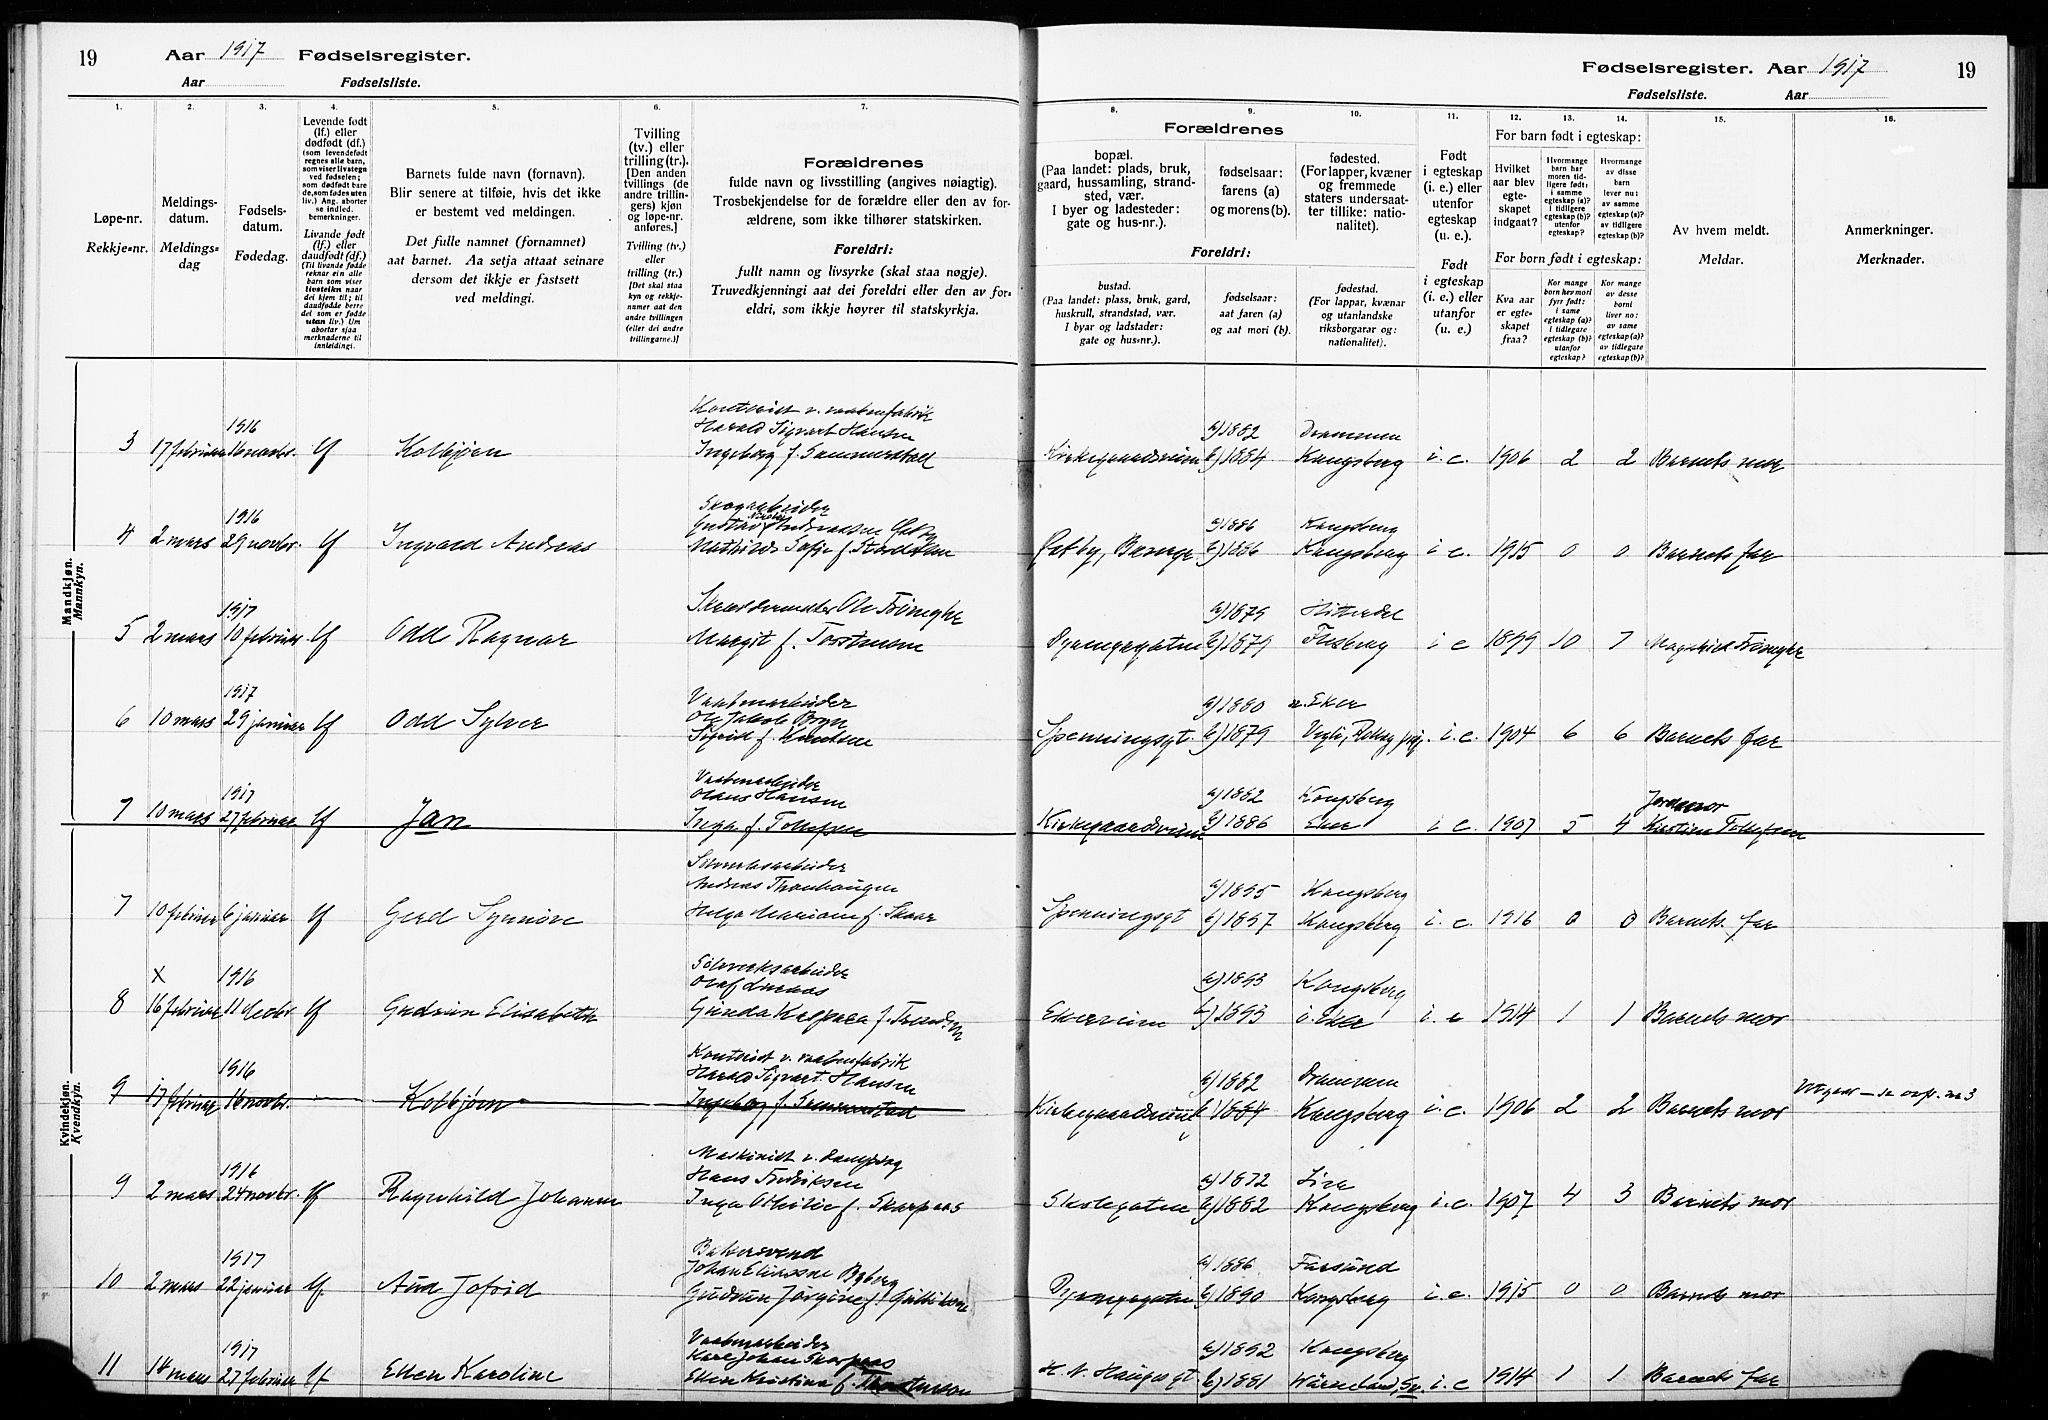 19 Aar 1917 Fødselsregister.
Aar Fødselsliste.
Fødselsregister. Aar 1917 19
Fødselsliste. Aar
1. 2. 3. 4. 5. 6. 7.
Løpe-nr.
Rekkje-nr.
Meldings-
datum.
Meldings-
dag
Fødsels-
datum.
Fødedag.
Levende født
(lf.) eller
dødfødt (df.)
(som levendefødt
regnes alle barn,
som viser livstegn
ved fødselen;
som dødfødt bare
de, som fødes uten
liv.) Ang. aborter
se indled.
bemerkninger.
Livande født
(lf.) eller
daudfødt (df.)
(Til livande fødde
reknar ein alle
born som viser
livsteikn naar
dei kjem til; til
daudfødde berre
dei som er fødde
utan liv.) Um
abortar sjaa
merknaderne til
innleidingi.
Barnets fulde navn (fornavn).
Blir senere at tilføie, hvis det ikke
er bestemt ved meldingen.
Det fulle namnet (fornamnet)
aat barnet. Aa setja attaat seinare
dersom det ikkje er fastsett
ved meldingi.
Tvilling
(tv.) eller
trilling (tr.).
[Den anden
tvillings (de
andre trillin-
gers) kjøn
og løpe-nr.
anføres.]
Tvilling (tv.)
eller
trilling (tr.)
[Det skal staa
kyn og rekkje-
numer aat den
andre tvillingen
(eller dei andre
trillingarne.)]
Forældrenes
fulde navn og livsstilling (angives nøiagtig).
Trosbekjendelse for de forældre eller den av for-
ældrene, som ikke tilhører statskirken.
Foreldri:
fullt namn og livsyrke (skal staa nøgje).
Truvedkjenningi aat dei foreldri eller den av for-
eldri, som ikkje høyrer til statskyrkja.
8. 9. 10. 11. 12. 13. 14. 15. 16.
Forældrenes
bopæl.
(Paa landet: plads, bruk,
gaard, hussamling, strand-
sted, vær.
I byer og ladesteder:
gate og hus-nr.).
Foreldri:
bustad.
(Paa landet: plass, bruk, gard,
huskrull, strandstad, vær.
I byar og ladstader:
gate og hus-nr.).
fødselsaar:
farens (a)
og morens (b).
fødselsaar:
aat faren (a)
og aat mori (b).
fødested.
(For lapper, kvæner
og fremmede
staters undersaat-
ter tillike: natio-
nalitet).
fødestad.
(For lappar, kvænar
og utanlandske
riksborgarar og:
nationalitet).
Født
i egteskap
(i. e.) eller
utenfor
egteskap
(u. e.).
Født
i egteskap
(i. e.) eller
utanfor
(u. e.)
For barn født i egteskap:
Hvilket
aar blev
egte-
skapet
indgaat?
Hvormange
barn har
moren tid-
ligere født:
i samme
egteskap (a)?
i tidligere
egteskap (b)?
utenfor
egteskap?
Hvormange
av disse
barn
lever nu:
av samme
egteskap (a)?
av tidligere
egteskap (b)?
For born født i egteskap:
Kva aar
er egte-
skapet
fraa?
Kor mange
born hev mori
fyrr født:
i same
egteskap (a)?
i tidlegare
egteskap (b)?
utanfor
egteskap?
Kor mange
av desse
borni
liver no:
av same
egteskap (a)?
av tidlegare
egteskap (b)?
Av hvem meldt.
Meldar.
Anmerkninger.
Merknader.
Mandkjøn.
Mannkyn.
Kontorist v. vaabenfabrik
1916 Harald Sigvart Hansen a) 1882 Drammen
3 17 februar 16 novbr. lf Kolbjørn Ingeborg f. Sammerstad b) 1884 Kongsberg i. e. 1906 2 2 Barnets mor
Skogarbeider
1916 Gustav Andreassen a) 1886 Kongsberg
4 2 mars 29 novbr. lf Ingvald Andreas Mathilde Sofie f. b) 1886 Kongsberg i e. 1915 0 0 Barnets far
1917 Skræddermester Ole a) 1879 Hitterdal
5 2 mars 10 februar lf Odd Ragnar Margit f. Torstensen Dyrmyrgaten b) 1879 i e 1899 10 7
1917 Vaabenarbeider a) 1880 Eker
6 10 mars 29 januar lf Odd Sylver Ole Jakob
Sigrid f. Knutsen Spenningsgt. b) 1879 i. e. 1904 6 6 Barnets far
1917 Vaabenarbeider
Olaus Hansen a) 1882 Kongsberg Jordmor
7 10 mars 27 februar lf Jan Inga f. Tollefsen b) 1886 Eker i e. 1907 5 4 Kirstine Tollefsen
Kvindekjøn.
Kvendkyn.
Sølvverksarbeider
Andreas a) 1895 Kongsberg
7 10 februar 6 januar lf Gerd Synnøve Helga Mariane f. Skaar Spenningsgt b) 1897 Kongsberg i. e. 1916 0 0 Barnets far
x 1916 Sølvverksarbeider
Olaf a) 1893 Kongsberg
8 16 februar 11 decbr. lf Gudrun Elisabeth Gunda f. b) 1893 ø. Eker i. e 1914 1 1 Barnets mor
Kontorist v. vaabenfabrik
1916 Harald Sigvart Hansen a) 1882 Drammen
9 17 februar 16 novbr. Kolbjørn Ingeborg f. Sammerstad b) 1884 Kongsberg i. e. 1906 2 2 Barnets mor Utgaar – se nr 3
Maskinist v.
1916 Hans Fredriksen a) 1872 Lier
9 2 mars 24 novbr. lf Ragnhild Johanne Inga Othilie f. Skarpaas Skolegaten b) 1882 Kongsberg i. e. 1907 4 3 Barnets mor
Bakersvend
1917 Johan Eliassen a) 1886 Farsund
10 2 mars 22 januar lf. Aud Jofrid Gudrun Jørgine f. Gulliksen Dyrmyrgaten b) 1890 Kongsberg i. e. 1915 0 0 Barnets mor
1917 Vaabenarbeider
Karl Johan Skarpaas a) 1892 Kongsberg
11 14 mars 27 februar lf Ellen Karoline Ellen Kristina f. H. N. Haugesgt b) 1881 Wärmland, Sv. i. e 1914 1 1 Barnets far